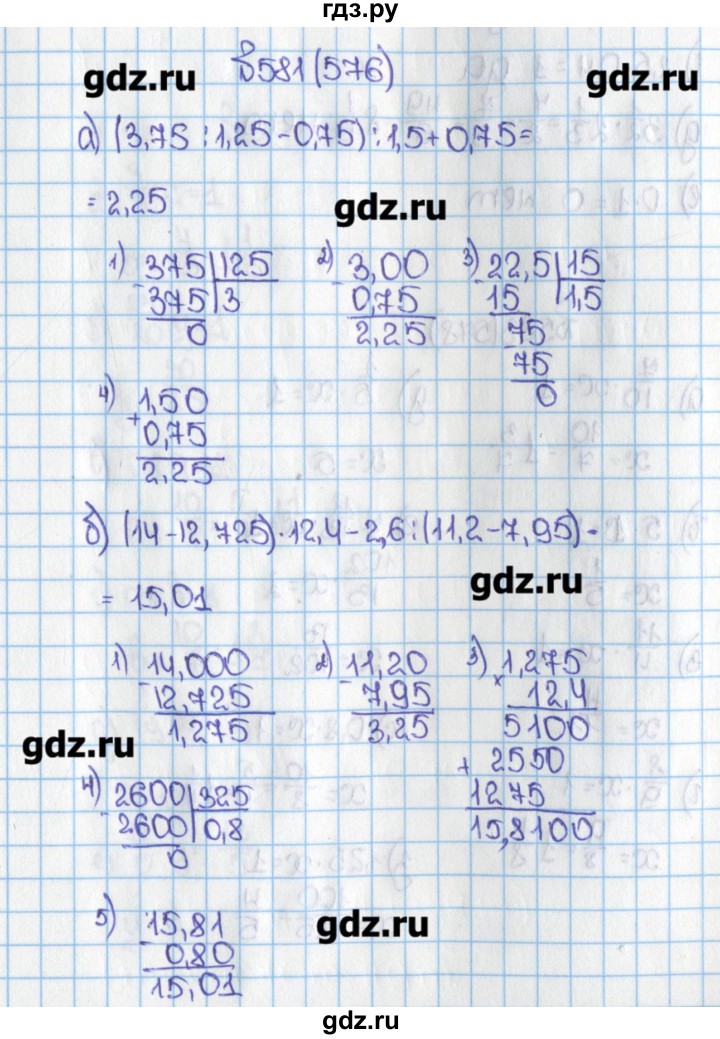 гдз.ру
№581 (576)
gdz.ru gdz.ru
а) (3,75 : 1,25 - 0,75) : 1,5 + 0,75 =
= 2,25
gdz.ru
1) 375 | 125 2) 3,00 3) 22,5 | 15
- 375 | 3 - 0,75 - 15 | 1,5
0 2,25 75
75
0
4) 1,50
+ 0,75
2,25
б) (14 - 12,725) · 12,4 - 2,6 : (11,2 - 7,95) =
gdz.ru
= 15,01
1) 14,000 2) 11,20 3) 1,275
- 12,725 - 7,95 × 12,4
1,275 3,25 5100
gdz.ru
+ 2550
4) 2600 | 325 1275
- 2600 | 0,8 15,8100
0
5) 15,81 gdz.ru
- 0,80
15,01
gdz.ru